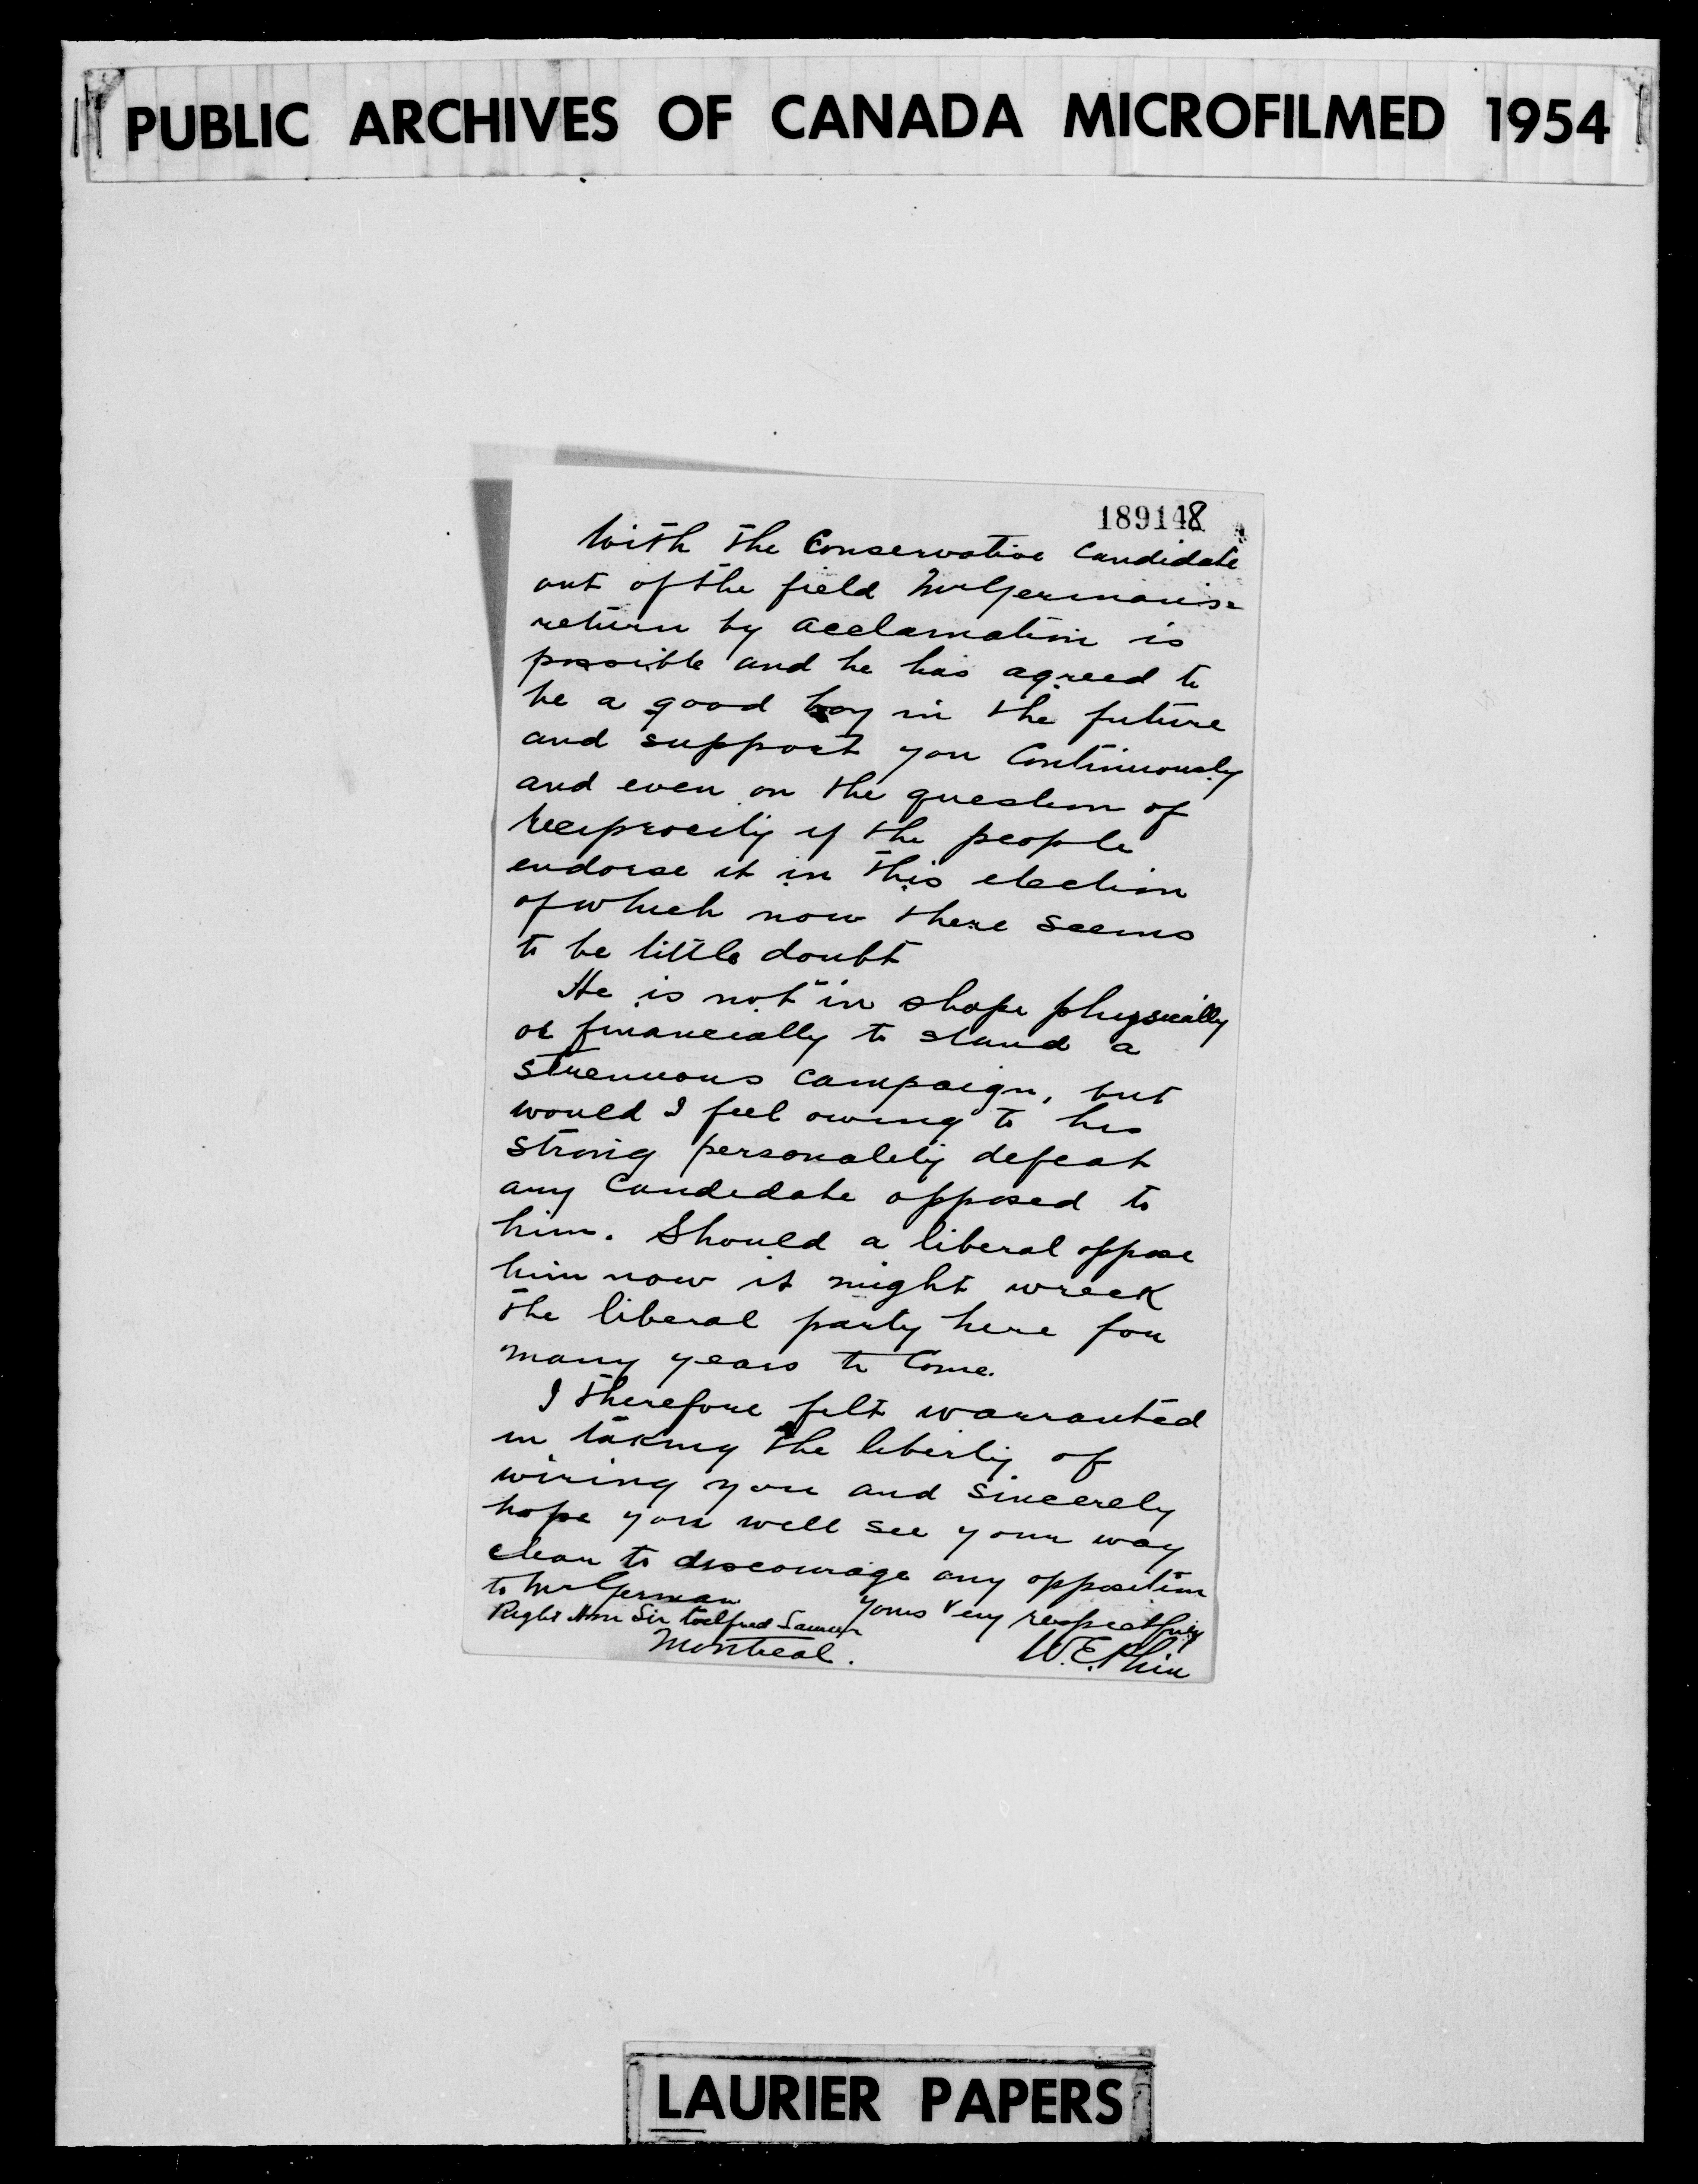 PUBLIC ARCHIVES OF CANADA MICROFILMED 1954
189148
With the Conservative Candidate
out of the field Mr German's
return by acclamation is
possible and he has agreed to
be a good boy in the future
and support you Continuously
and even on the question of
reciprocity if the people
endorse it in this election
of which now there seems
to be little doubt
He is not in shape physically
or financially to stand a
strenuous campaign, but
would I feel owing to his
strong personality defeat
any Candidate opposed to
him. Should a liberal oppose
him now it might wreck
the liberal party here for
many years to Come.
I therefore felt warranted
in taking the liberty of
wiring you and sincerely
hope you will see your way
clear to discourage any opposition
to Mr German
Yours Very respectfully
Right Hon Sir Wilfred Laurier
Montreal.
W.E. Phin
LAURIER PAPERS